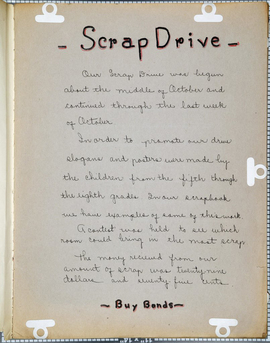 - Scrap Drive -
Our Scrap Drive was begun
about the middle of October and
continued through the last week
of October.
In order to promote our drive
slogans and posters were made by
the children from the fifth through
the eighth grades. In our scrapbook
we have examples of some of this work.
A contest was held to see which
room could bring in the most scrap.
The money recieved from our
amount of scrap was twenty nine
dollars and seventy five cents.
- Buy Bonds -